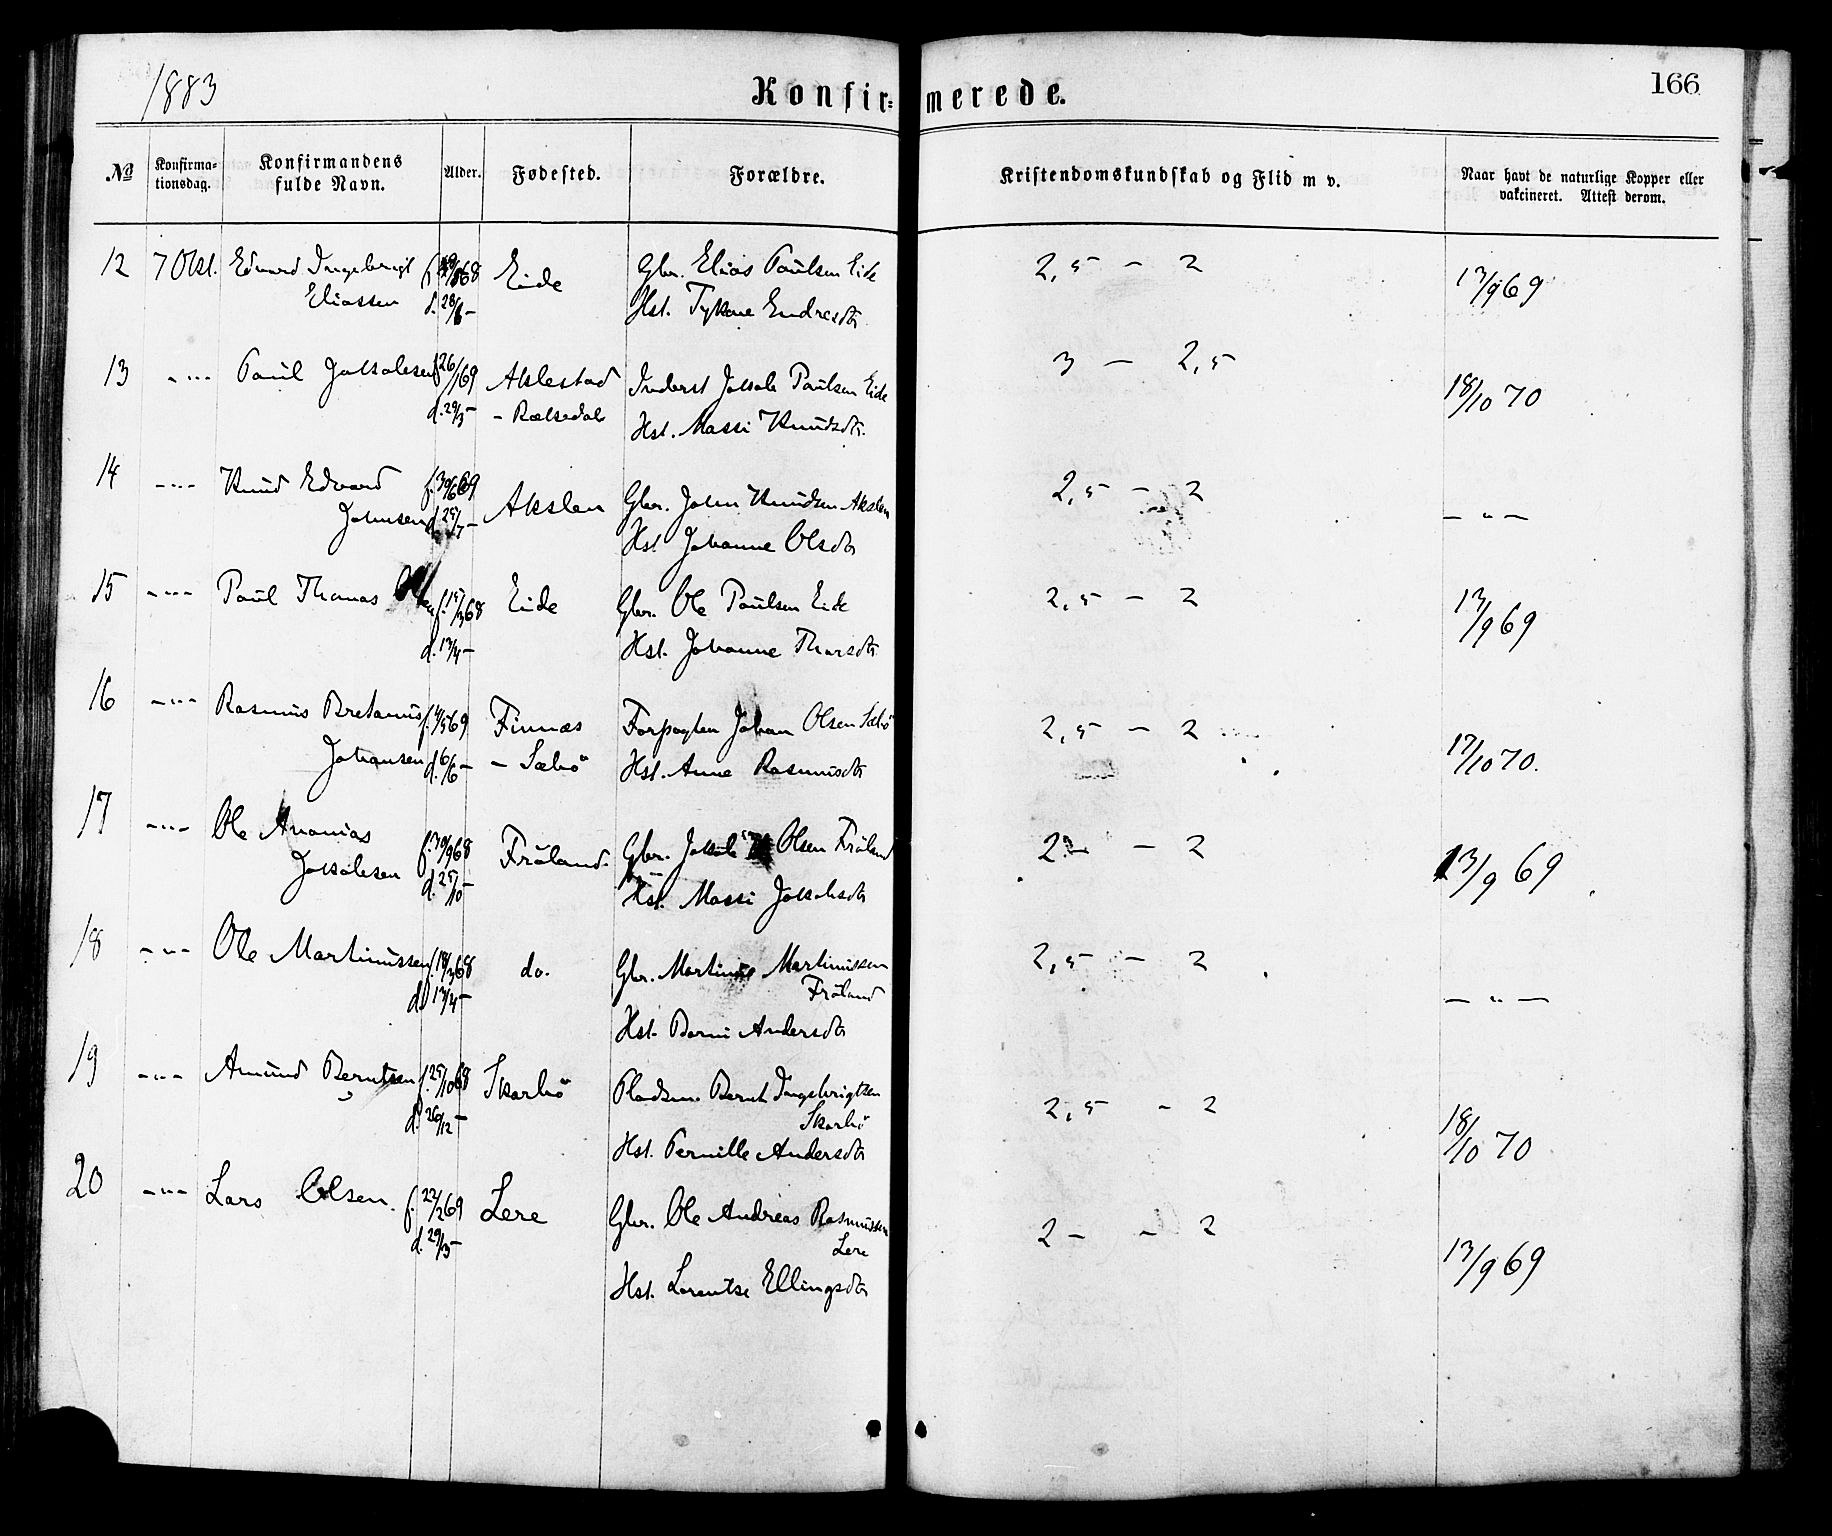 1883
Konfirmerede.
166
No
Konfirma-
tionsdag.
Konfirmandens
fulde Navn.
Alder.
Fødested.
Forældre.
Kristendomskundskab og Flid m v.
Naar havt de naturlige Kopper eller
vakcineret. Attest derom.
12 7 Okt. Edvard Ingebrigt 68 Eide Gbr. Elias Paulsen Eide 2,5 - 2 13/9 69
Eliassen d. 28/6 - Hst. Endresdtr
13 - " - Paul Jakobsen f. 26/1 69 Akslestad Inderst Jakob Paulsen Eide 3 - 2,5 18/10 70
d. 29/3 - - Rælsedal Hst. Massi Knudsdtr.
14 - " - Knud Edvard f. 30/6 69 Akslen Gbr. John Knudsen Akslen 2,5 - 2 - " -
Johnsen d. 25/7 - Hst. Johanne Olsdtr
15 - " - Paul Thomas Olsen f. 15/3 68 Eide Gbr. Ole Paulsen Eide 2,5 - 2 13/9 69
d. 13/4 - Hst. Johanne Tharsdtr
16 - " - Rasmus Bretanus f. 4/5 69 Finnæs Forpagter Johan Olsen Sæbö 2,5 - 2 17/10 70.
Johansen d. 6/6 - - Sæbö Hst. Anne Rasmusdtr
17 - " - Ole Ananias f. 30/9 68 Fröland. Gbr. Jakob Olsen Fröland 2 - - 2 13/9 69
Jakobsen d. 25/10 - Hst. Massi Jakobsdtr
18 - " - Ole Martinussen f. 18/3 68 do. Gbr. Martinus Martinussen 2,5 - 2 - " -
Fröland
d. 13/4 - Hst. Berni Andersdtr
19 - " - Amund Berntsen f. 25/10 68 Skarbö Pladsm. Bernt Ingebrigtsen 2,5 - 2 18/10 70
Skarbö
d. 26/12 - Hst. Pernille Andersdtr
20 - " - Lars Olsen. f. 22/2 69 Lere Gbr. Ole Andreas Rasmussen 2 - - 2 13/9 69
Lere
d. 29/3 - Hst. Lorentse Ellingsdtr